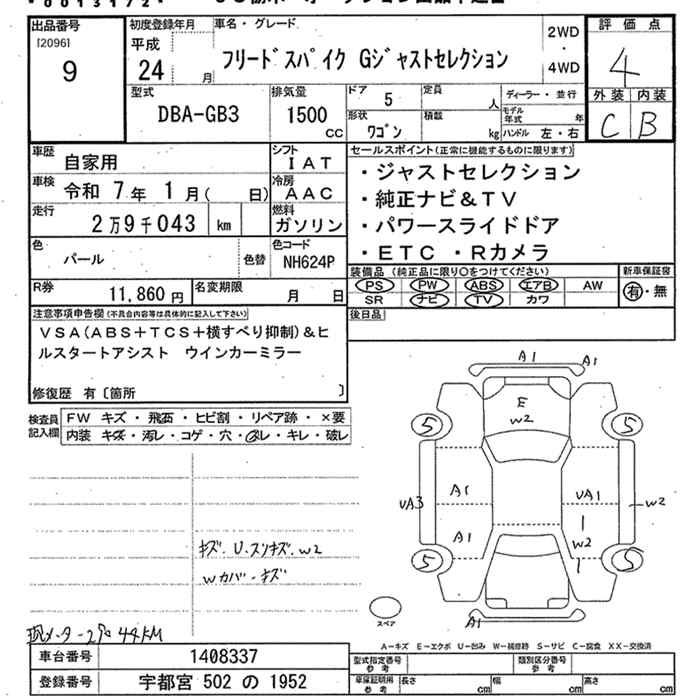 *00131721*
出品番号
[2096]
9
初度登録年月
平成
24 月
車名・グレード
フリードスパイク Gジャストセレクション
2WD
・
4WD
評価点
4
外装 内装
C B
型式
DBA-GB3
排気量
1500
CC
ドア
5
定員
人
ディーラー・並行
モデル年式 年
形状
ワゴン
積載
kg
ハンドル 左・右
車歴
自家用
シフト
IAT
車検
令和 7年 1月( 日)
冷房
AAC
走行
2万9千043 km
燃料
ガソリン
色
パール
色替
色コード
NH624P
R券
11,860円
名変期限
月 日
セールスポイント(正常に機能するものに限ります)
・ジャストセレクション
・純正ナビ&TV
・パワースライドドア
・ETC ・Rカメラ
装備品(純正品に限り○をつけてください)
PS PW ABS エアB AW
SR ナビ TV カワ
新車保証書
有・無
後日品
注意事項申告欄(不具合内容等は具体的に記入して下さい)
VSA(ABS+TCS+横すべり抑制)&ヒ
ルスタートアシスト ウインカーミラー
修復歴 有〔箇所 〕
検査員
記入欄
FW キズ・飛石・ヒビ割・リペア跡・×要
内装 キズ・汚レ・コゲ・穴・スレ・キレ・破レ
キズ.U.スリキズ.W2
Wカバーキズ
44KM
A1
A1
E
W2
5
5
A1
UA1
UA3
W2
A1
W2
5
5
スペア
A1
A-キズ E-エクボ U-凹み W-補修跡 S-サビ C-腐食 XX-交換済
車台番号
1408337
登録番号
宇都宮 502 の 1952
型式指定番号
参考
類別区分番号
参考
車庫証明用
参考
長さ cm
幅 cm
高さ cm